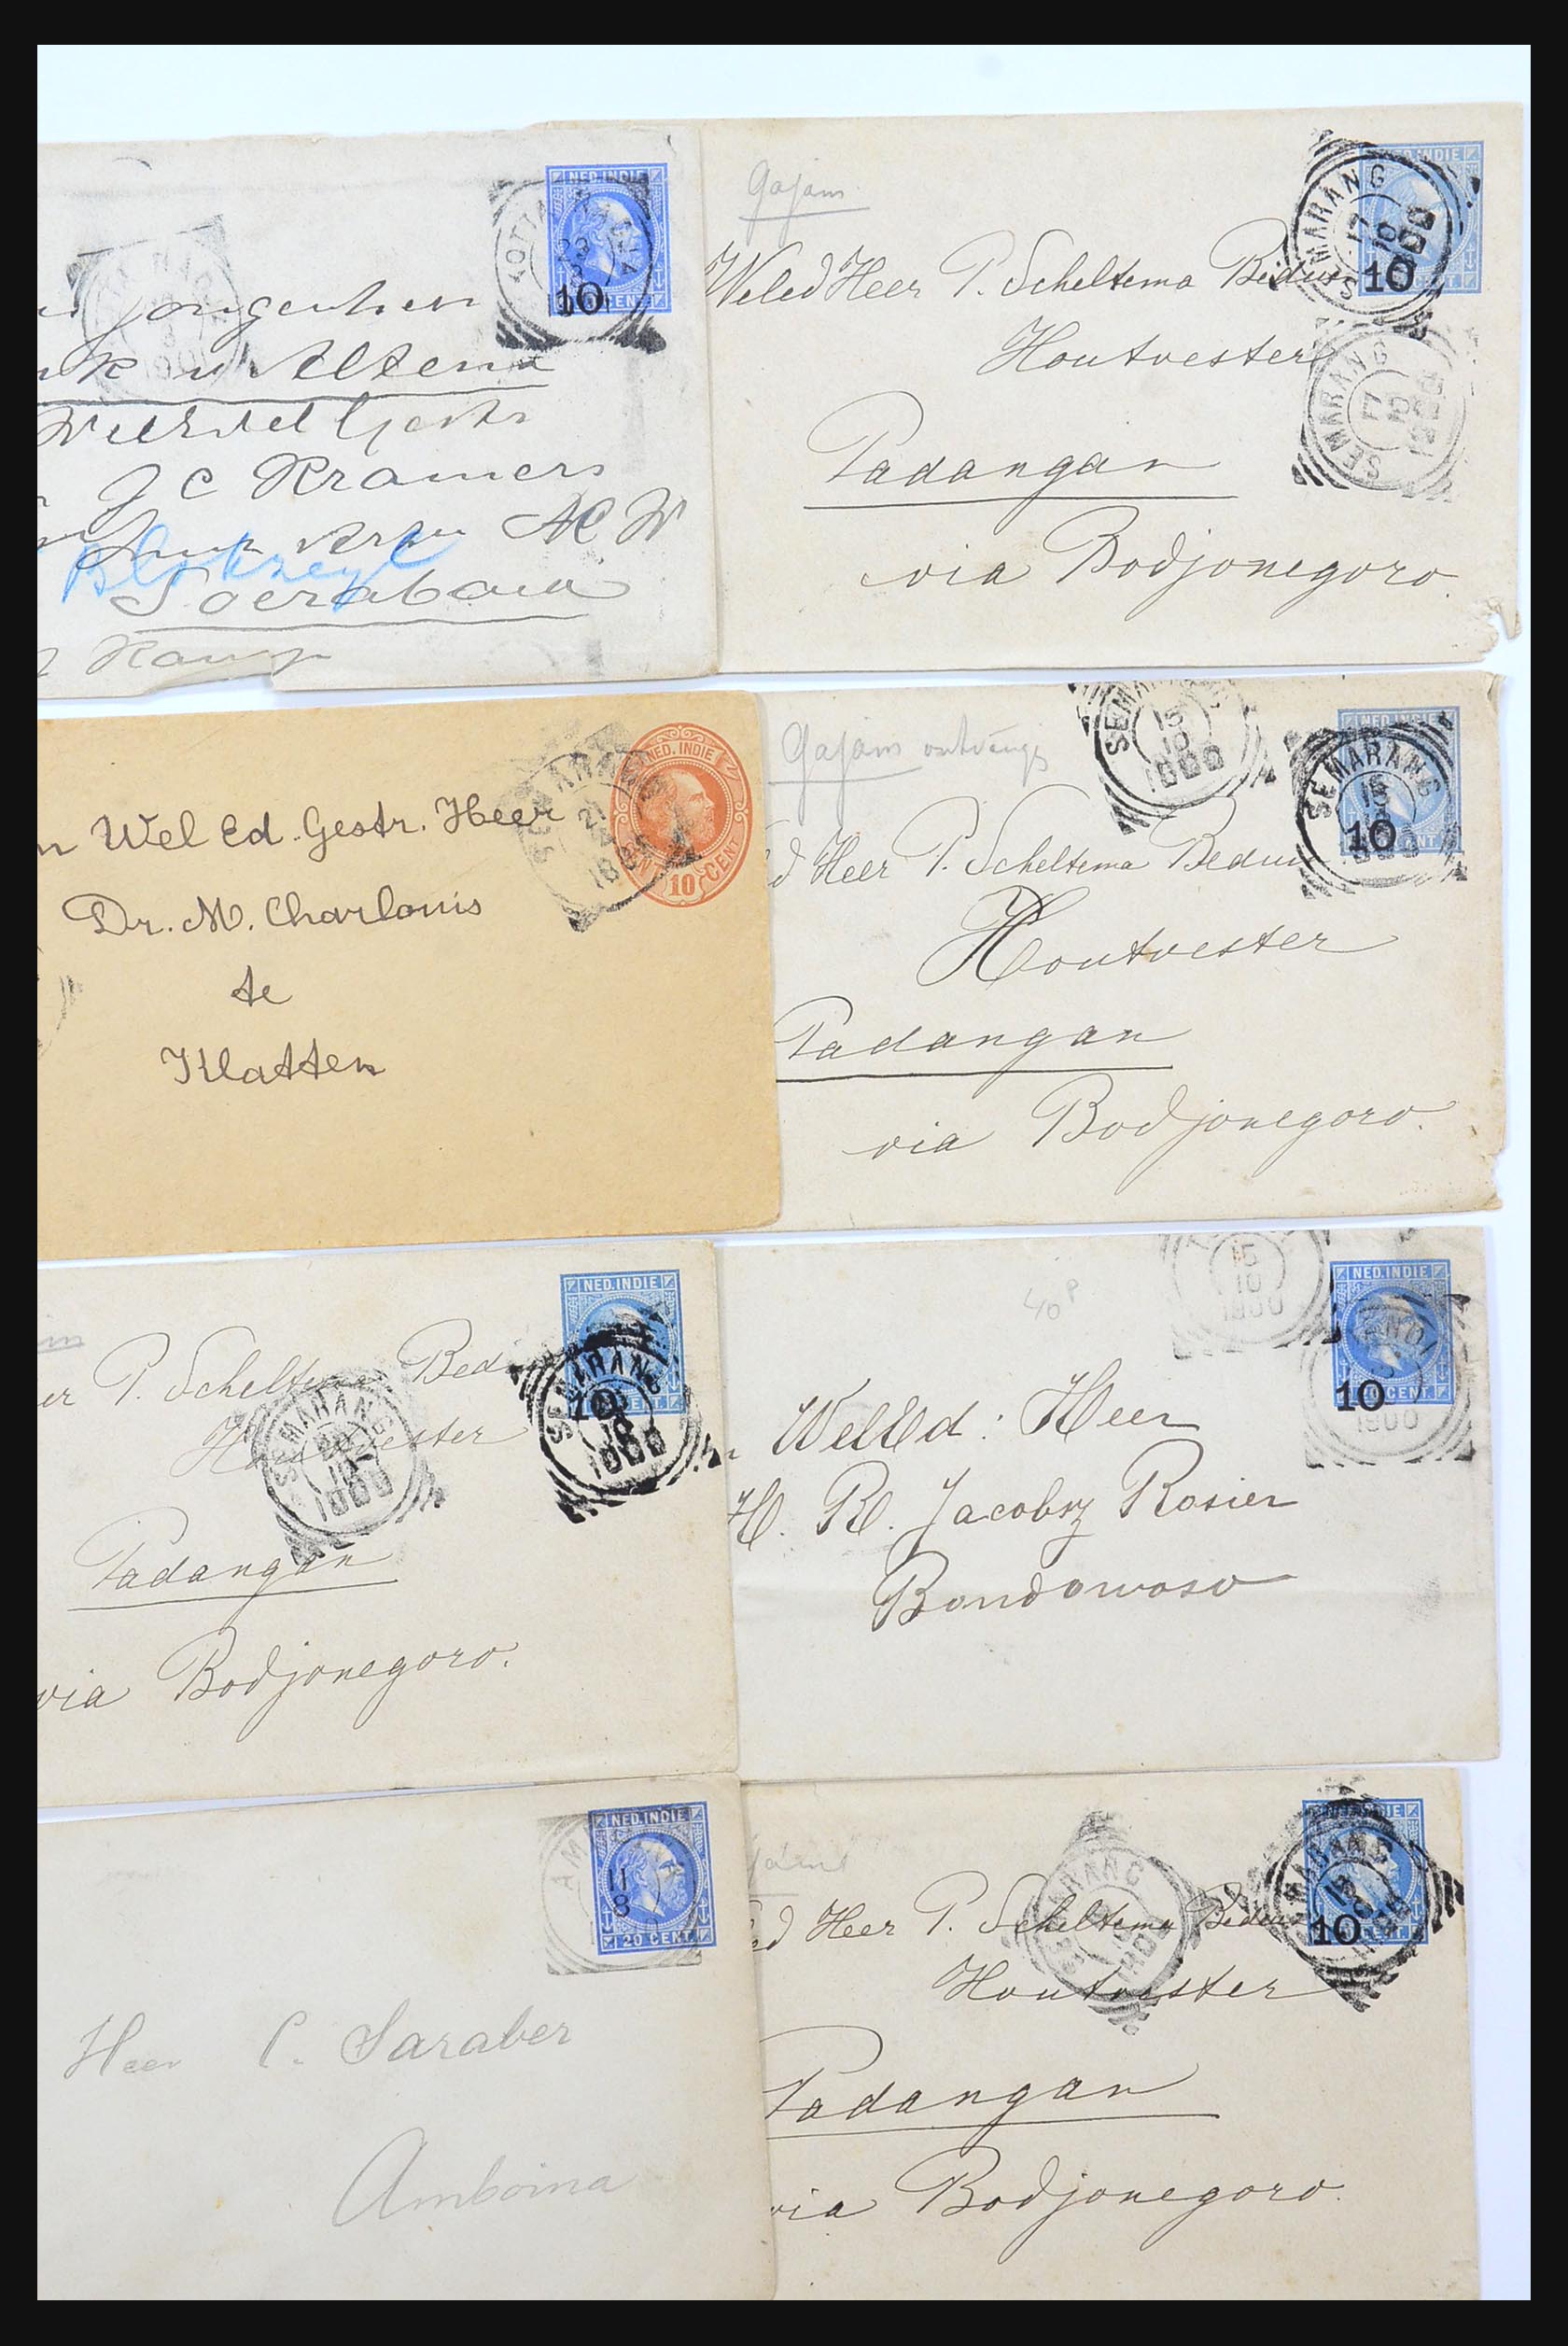 NED. INDIE
23
10
CENT
Jongenheer
v Altena
J C Kramers
Soerabaia
Blokzeyl
Gajam
NED. INDIE
SEMARANG
17
10
10
CENT
SEMARANG
WelEd Heer P. Scheltema Beduin
Houtvester
Padangan
via Bodjonegoro.
NED. INDIE
10 CENT
SEMARANG
21
Wel Ed. Gestr. Heer
Dr. M. Charlouis
te
Klatten
Gajam ontvangs
SEMARANG
15
10
1900
NED. INDIE
SEMARANG
15
10
CENT.
d Heer P. Scheltema Beduin
Houtvester
Padangan
via Bodjonegoro.
NED. INDIE
10
CENT.
SEMARANG
10
1900
er P. Scheltema Bed
SEMARANG
10
1900
Houtvester
Padangan
via Bodjonegoro.
15
10
1900
NED. INDIE
10 CENT.
1900
40 P
n WelEd: Heer
H. R. Jacobsz Rosier
Bondowoso
AM
11
8
NED. INDIE
20 CENT.
Heer C. Saraber
Amboina
SEMARANG
NED. INDIE
SEMARANG
10
CENT.
Ed Heer P. Scheltema Beduin
Houtvester
Padangan
via Bodjonegoro.